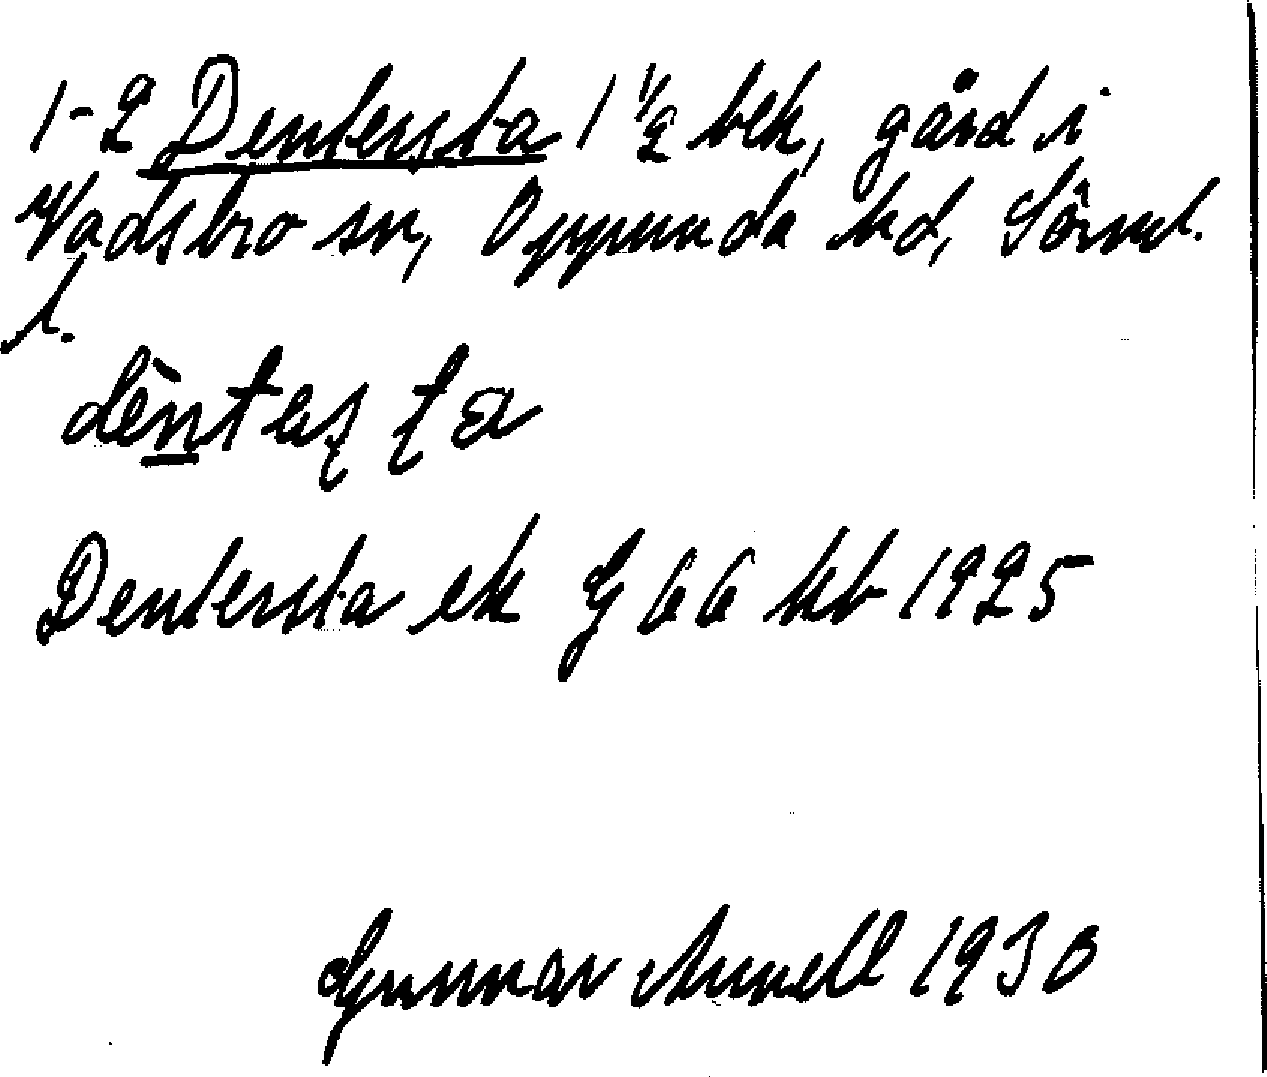 1-2 Dentersta 1 ½ bek, gård i
Vadsbro sn, Oppunda hd, Sörml.
l.
Dentersta ek G 66 kb 1925
Gunnar 1930